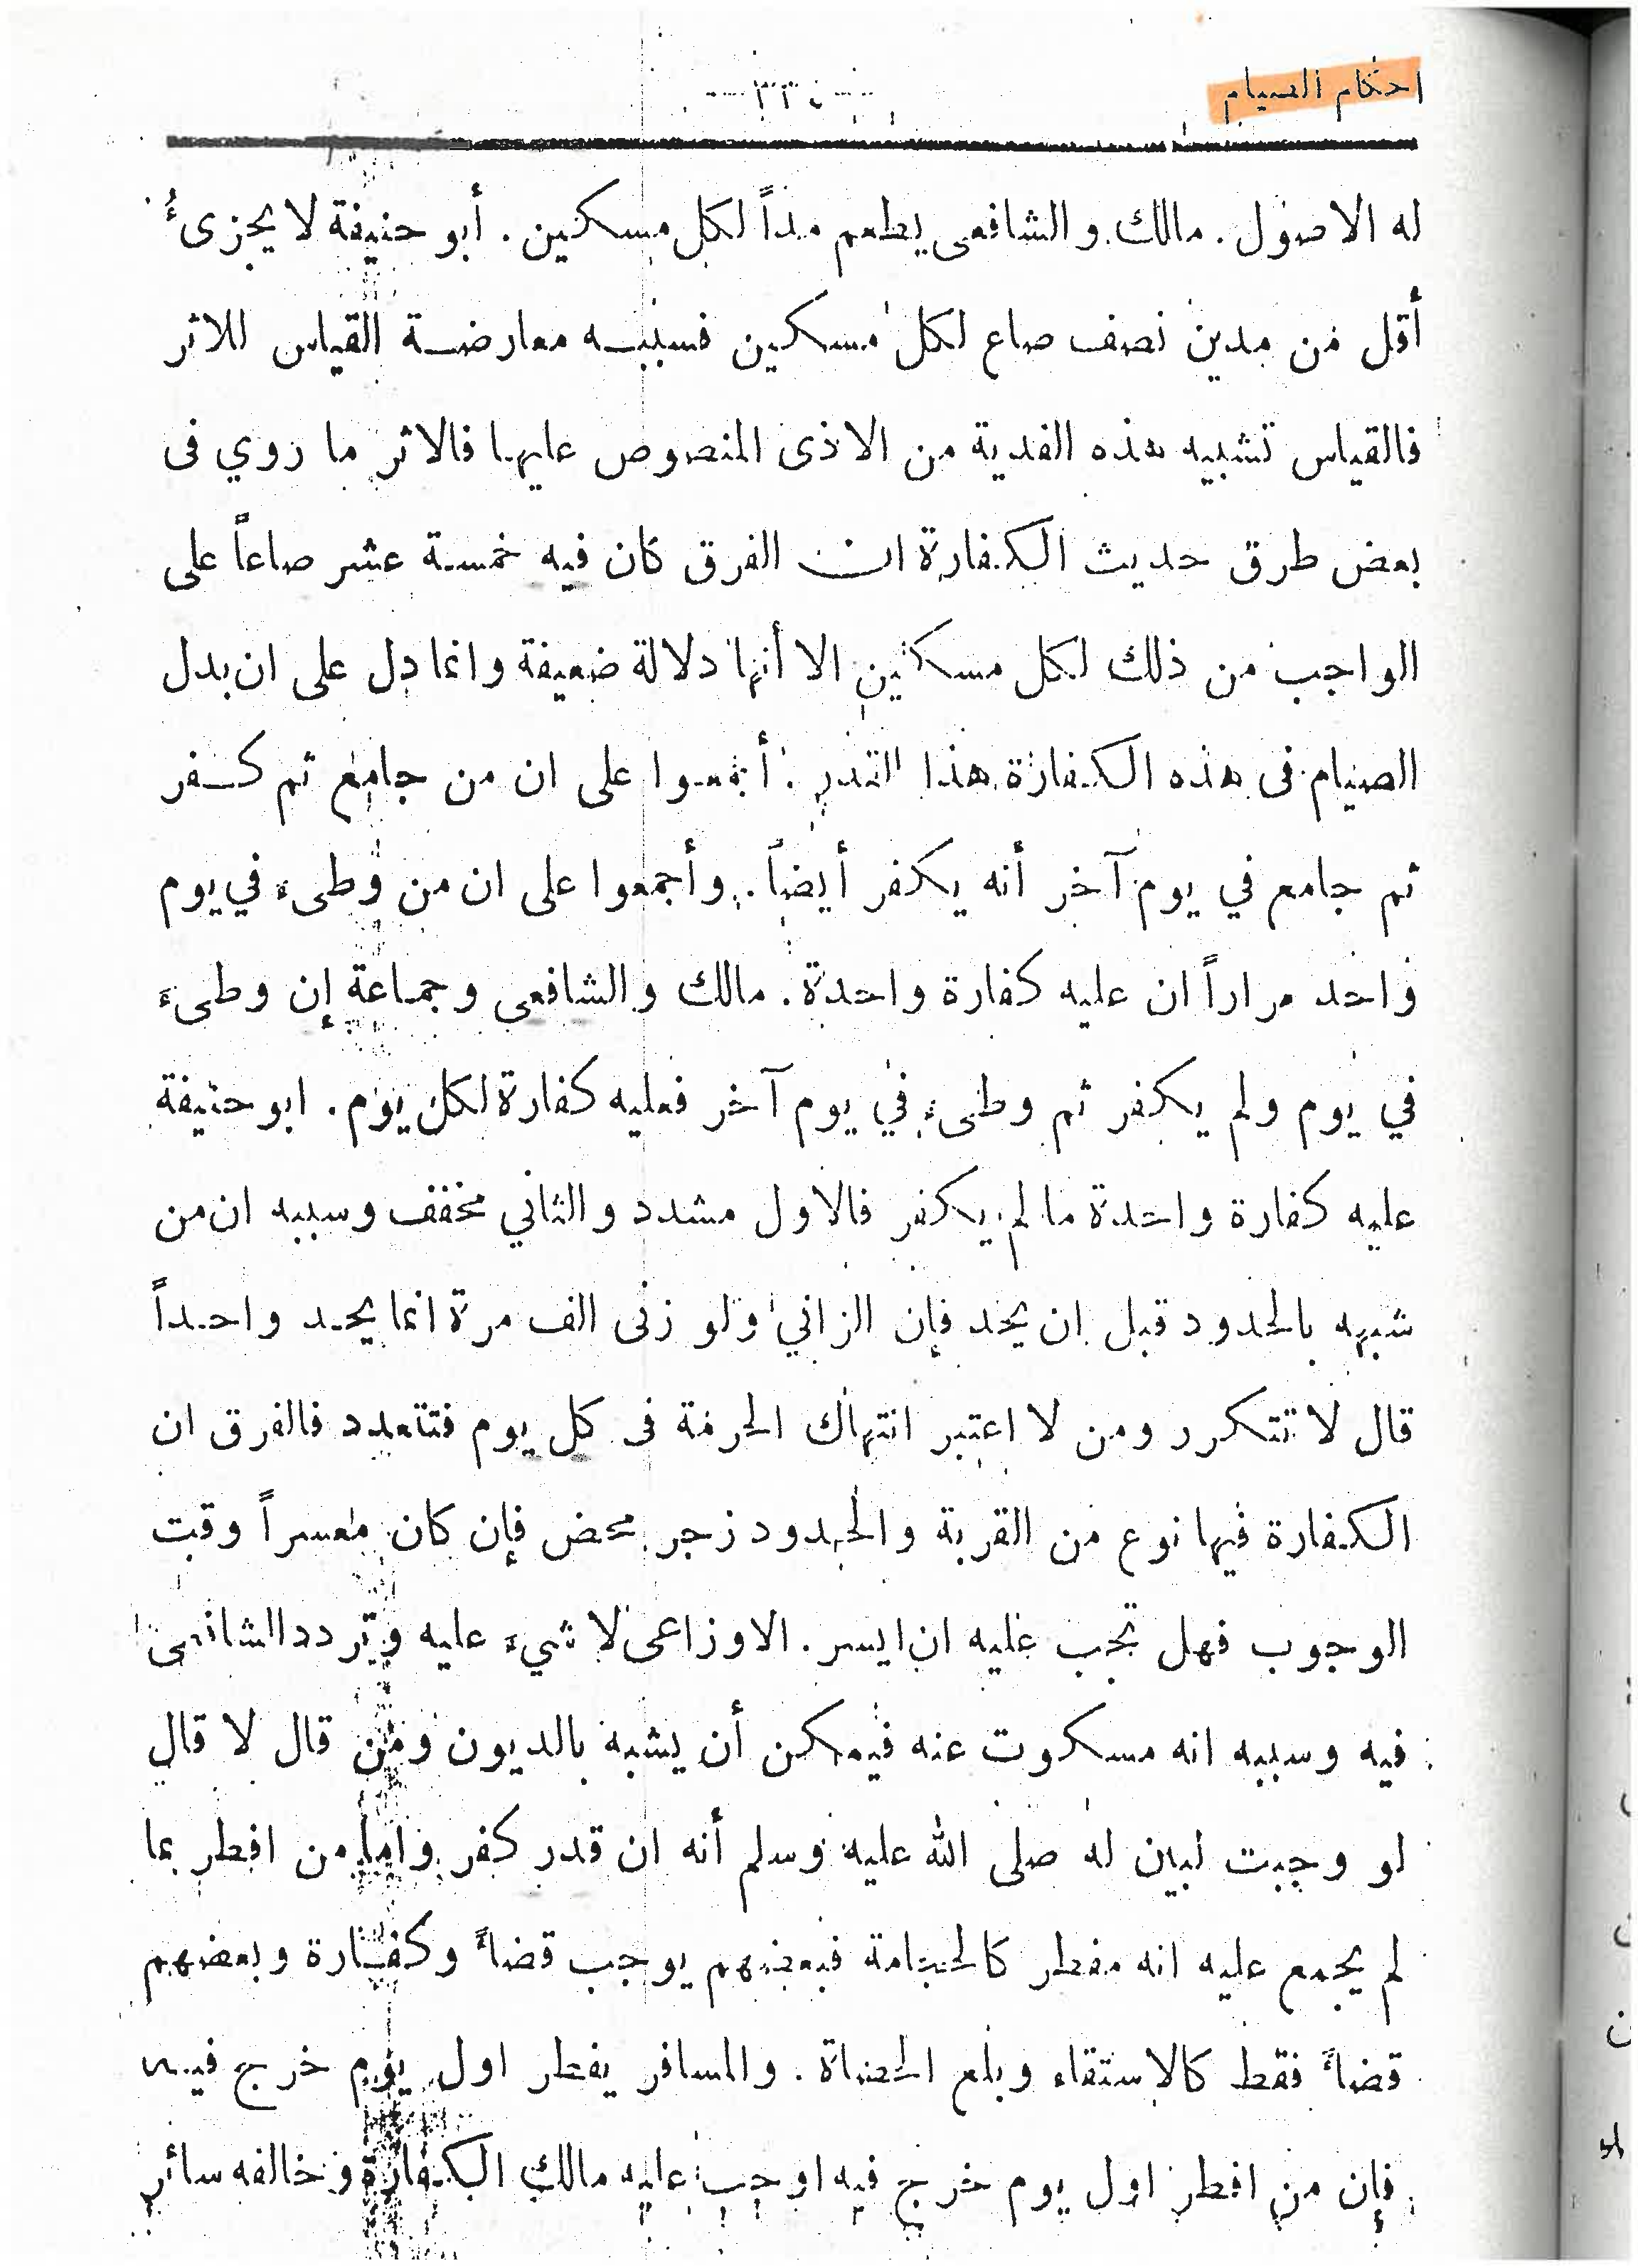 احكام الصيام
له الاصول . مالك والشافعى يطعم مداً لكل مسكين . أبو حنيفة لا يجزىءُ
أقل من مدين نصف صاع لكل مسكين فسببه معارضة القياس للاثر
فالقياس تشبيه هذه الفدية من الاذى المنصوص عليها فالاثر ما روي فى
بعض طرق حديث الكفارة ان الفرق كان فيه خمسة عشر صاعاً على
الواجب من ذلك لكل مسكين الا أنها دلالة ضعيفة وانما دل على ان بدل
الصيام فى هذه الكفارة هذا القدر . أجمعوا على ان من جامع ثم كفر
ثم جامع في يوم آخر أنه يكفر أيضاً . وأجمعوا على ان من وطىء في يوم
واحد مراراً ان عليه كفارة واحدة . مالك والشافعى وجماعة إن وطىء
في يوم ولم يكفر ثم وطىء في يوم آخر فعليه كفارة لكل يوم . ابو حنيفة
عليه كفارة واحدة ما لم يكفر فالاول مشدد والثاني مخفف وسببه ان من
شبهه بالحدود قبل ان يحد فإن الزاني ولو زنى الف مرة انما يحد واحداً
قال لا تتكرر ومن لا اعتبر انتهاك الحرمة فى كل يوم فتتعدد فالفرق ان
الكفارة فيها نوع من القربة والحدود زجر محض فإن كان معسراً وقت
الوجوب فهل تجب عليه ان ايسر . الاوزاعى لا شيء عليه وتردد الشافعى
فيه وسببه انه مسكوت عنه فيمكن أن يشبه بالديون ومن قال لا قال
لو وجبت لبين له صلى الله عليه وسلم أنه ان قدر كفر واما من افطر بما
لم يجمع عليه انه مفطر كالحجامة فبعضهم يوجب قضاءً وكفارة وبعضهم
قضاءً فقط كالاستقاء وبلع الحصاة . والمسافر يفطر اول يوم خرج فيه
فإن من افطر اول يوم خرج فيه اوجب عليه مالك الكفارة وخالفه سائر